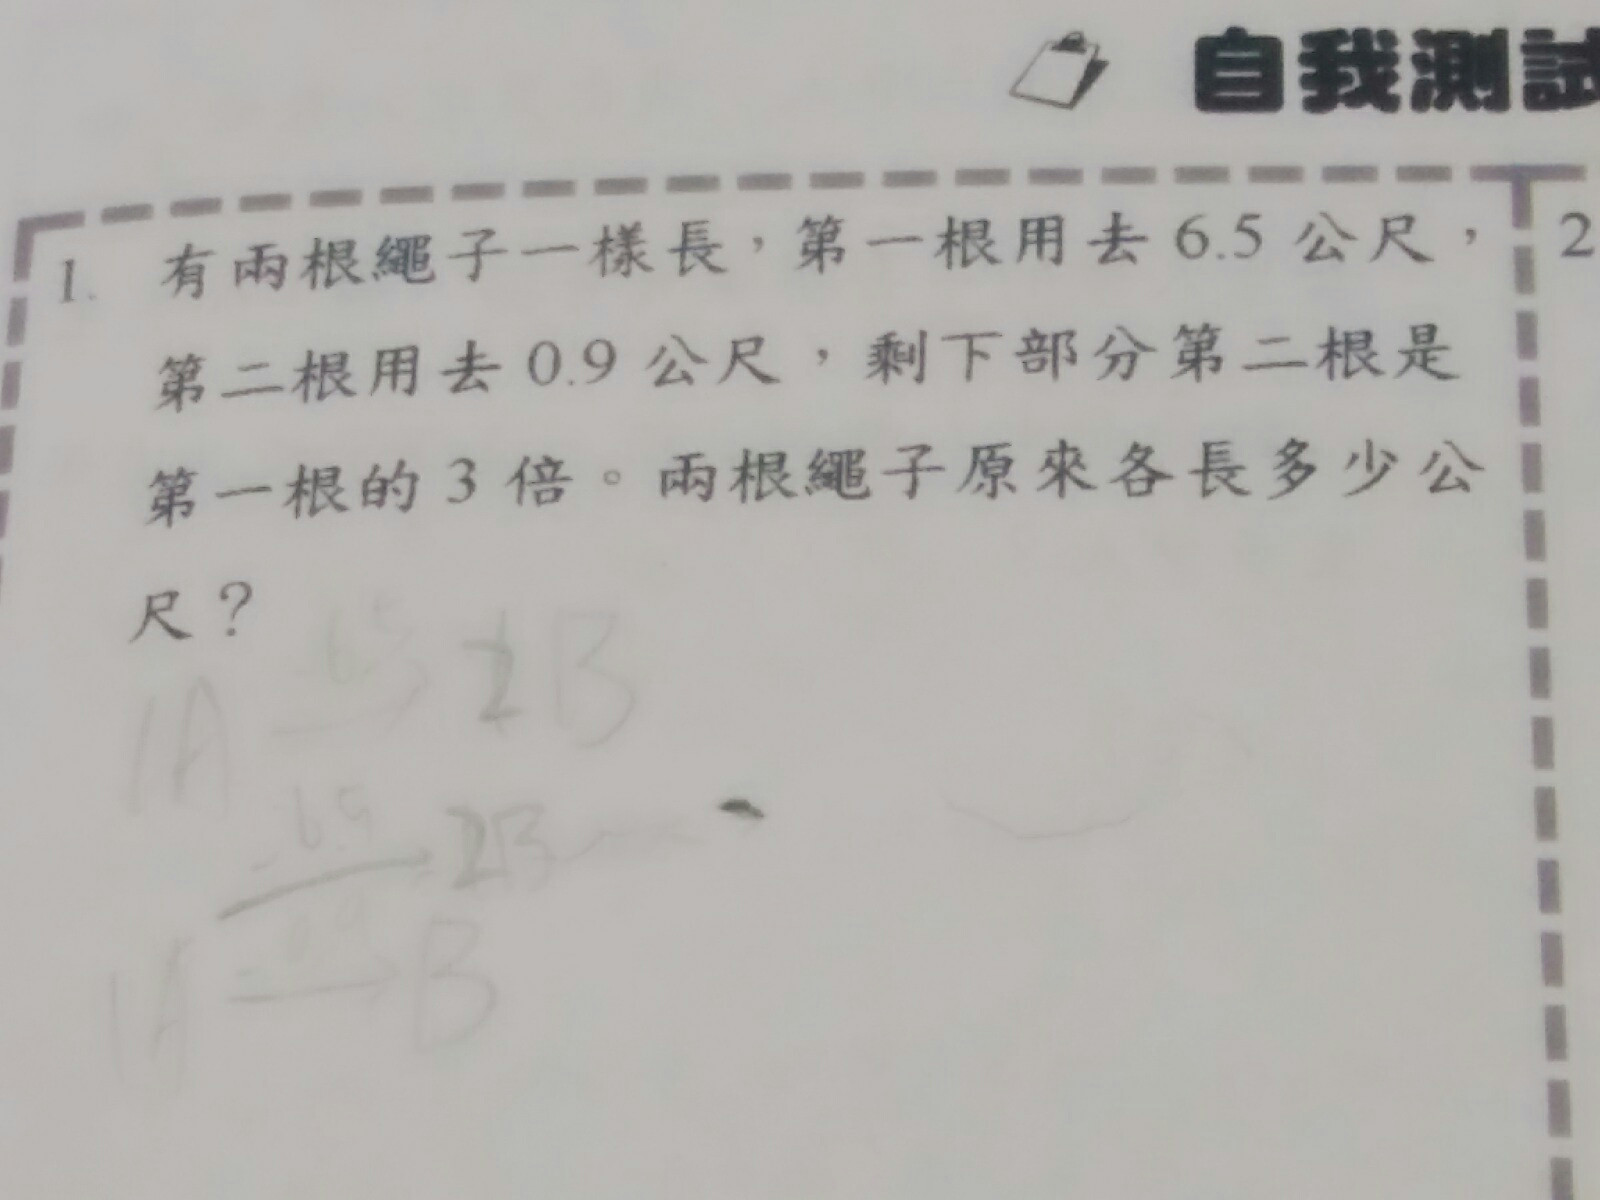 自我測試
1. 有兩根繩子一樣長，第一根用去 6.5 公尺，
第二根用去 0.9 公尺，剩下部分第二根是
第一根的 3 倍。兩根繩子原來各長多少公
尺？
2
1A 6.5 2B
6.5 2B
1A B